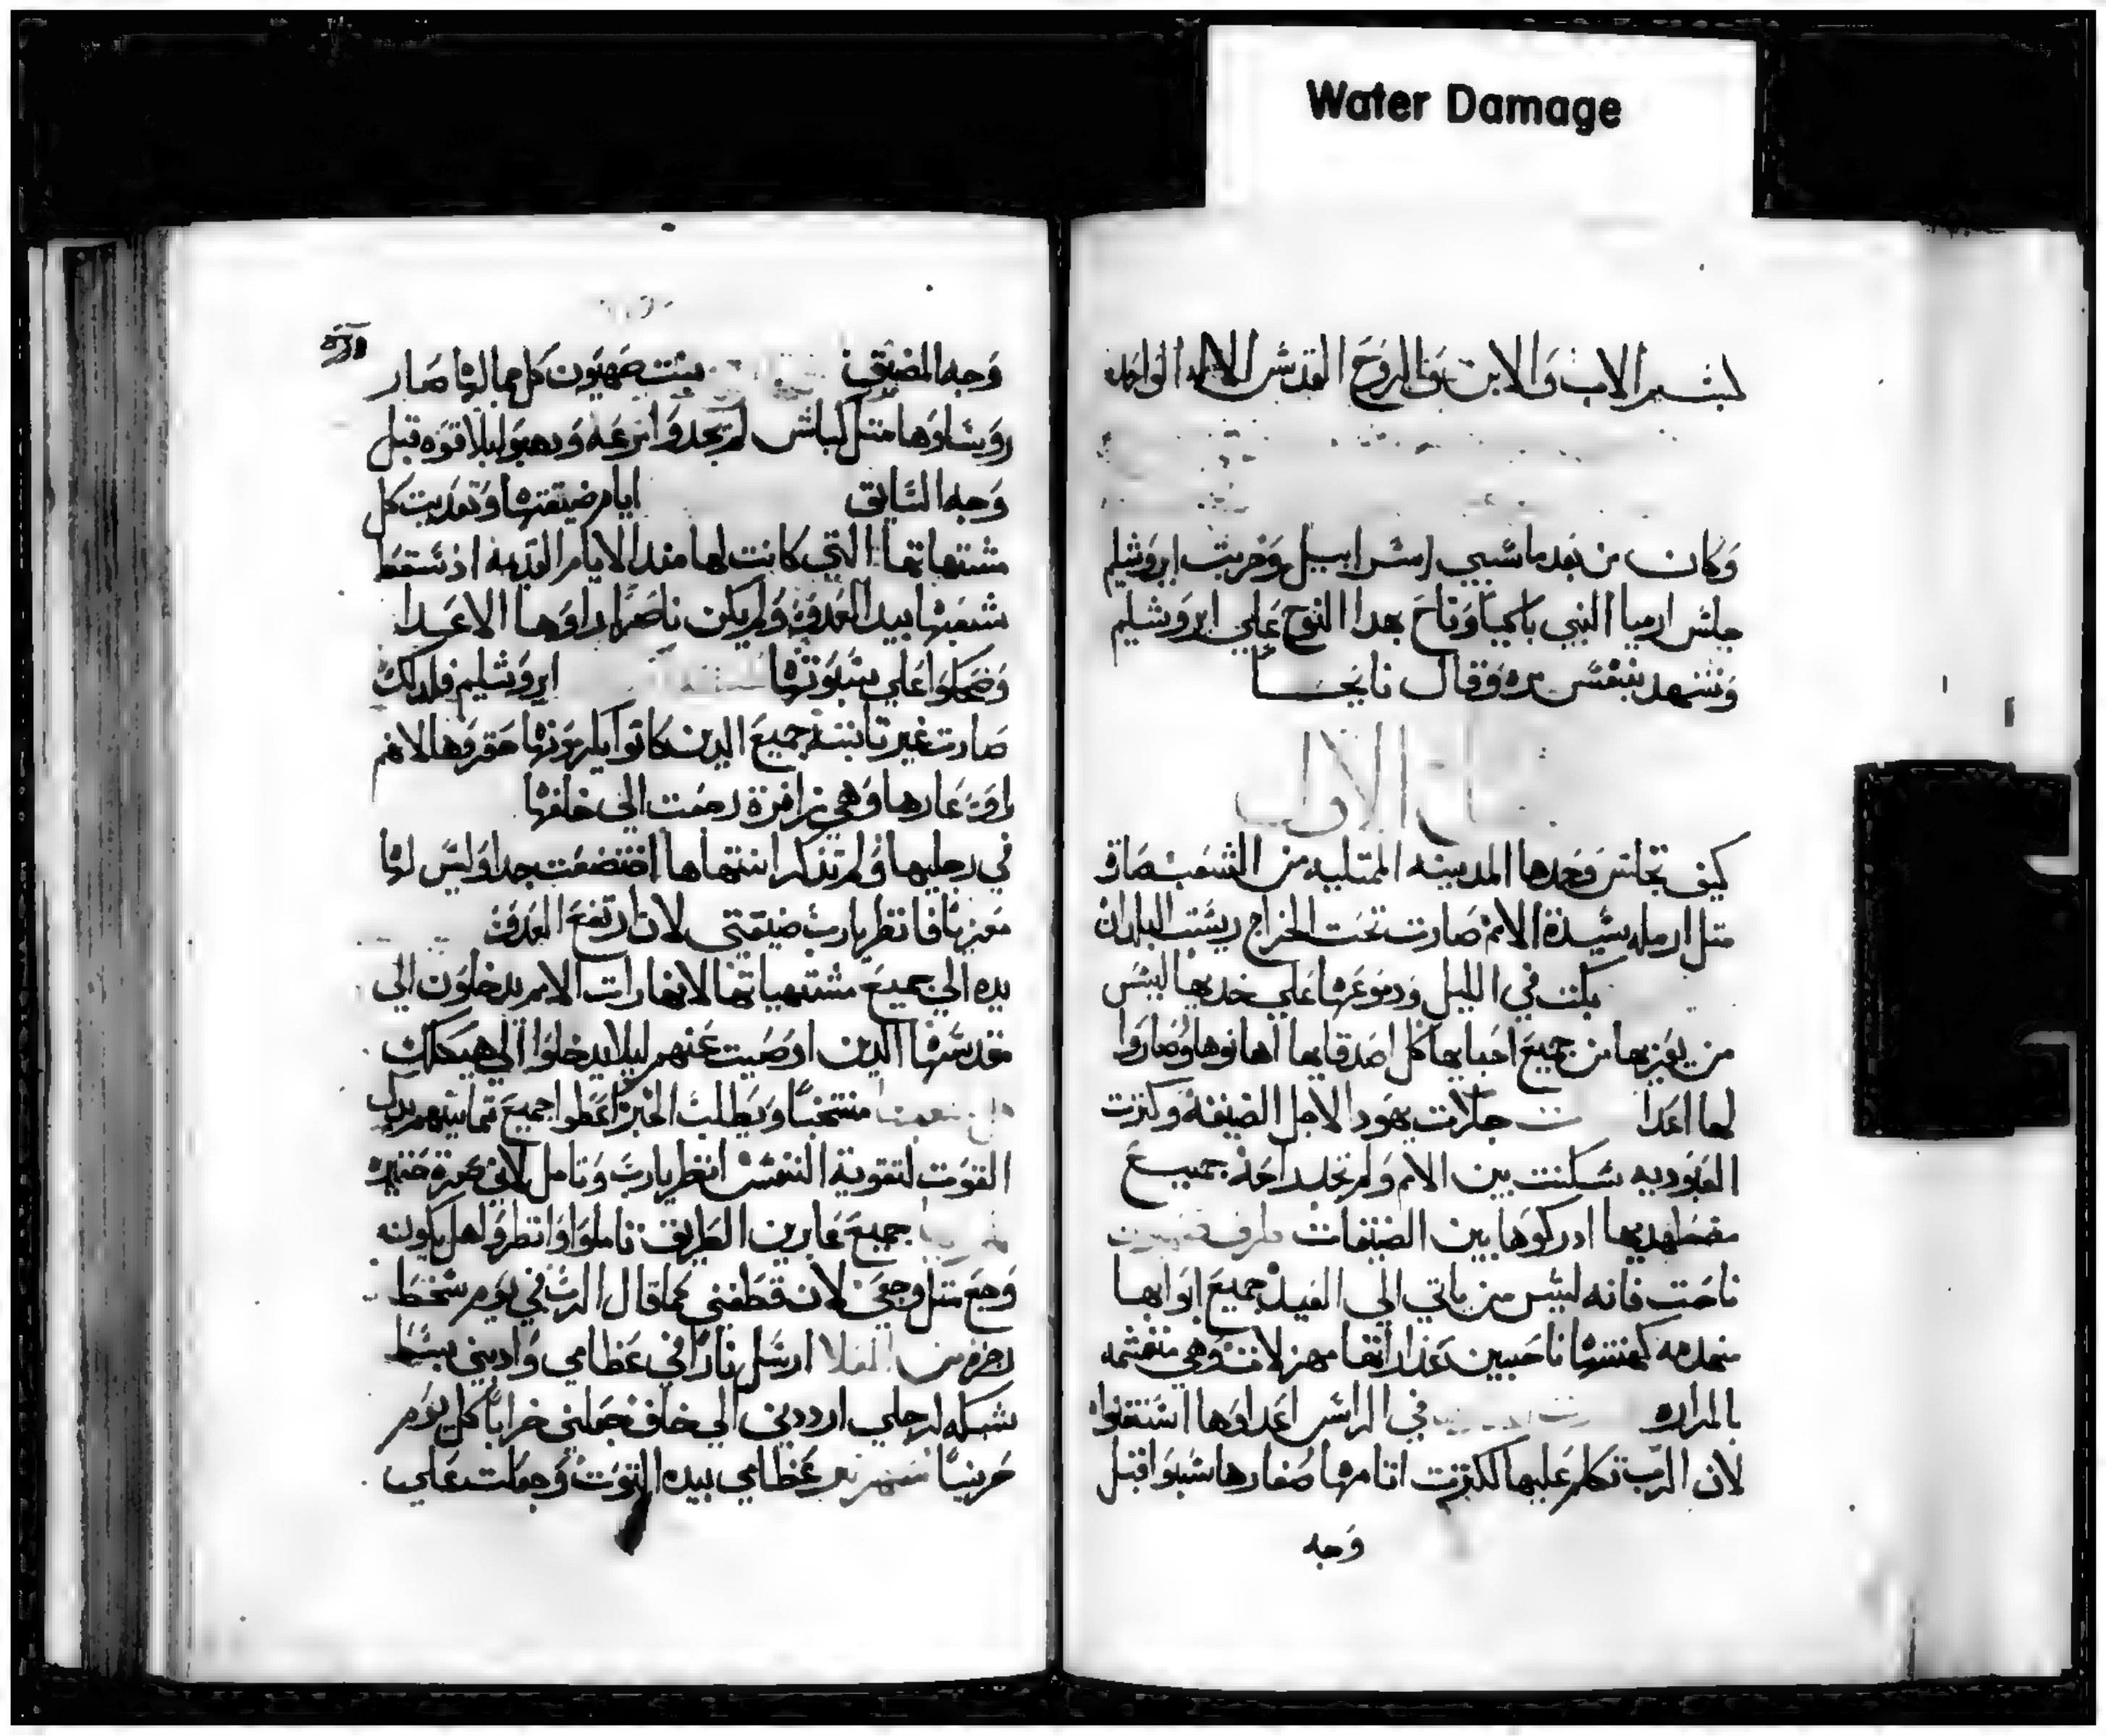 Water Damage
بسم الاب والابن والروح القدس الاله الواحد
وكان من بعد ما سبي اسراييل وخربت ايروشليم
جلس ارميا النبي باكيا وناح بهدا النوح علي ايروشليم
وتنهد بنفس مره وقال نايحا
الاول
كيف تجلس وحدها المدينه الممتليه من الشعب صارت
متل ارمله سيدة الامم صارت تحت الخراج ريست البلدان
بكت في الليل ودموعها علي خديها ليس
من يعزيها من جميع احبايها كل اصدقايها اهانوها وصاروا
لها اعدا جلات يهودا لاجل الضيقه وكترت
العبوديه سكنت بين الامم ولم تجد راحه جميع
مضطهديها ادركوها بين الضيقات طرق صهيون
ناحت فانه ليس من ياتي الي العيد جميع ابوابها
منهدمه كهنتها ناحبين عذاراتها مهزولات وهي متغشمه
بالمراره في الراس اعداوها استغنوا
لان الرب تكلم عليها لكترت اتامها صغارها سبوا قبل
وجه
وجه المضيق بنت صهيون كل جمالها صار
روساوها متل كباش لم يجدوا مرعه ودهبوا بلا قوه قبل
وجه السايق ايام ضيقتها وتعديت كل
مشتهاتها التي كانت لها مند الايام القديمه اد سقط
شعبها بيد العدو ولم يكن ناصرا راوها الاعدا
وضحكوا علي سبوتها ايروشليم فلدلك
صارت غير تابته جميع الدين كانوا يكرمونها حقروها لانهم
راوا عارها وهي زافرة رجعت الي خلفها
في رجليها ولم تدكر انتهاها اتضعت جدا وليس لها
معزيا فانظر يارب ضيقتي لان ارتفع العدو
يده الي جميع مشتهياتها لانها رات الامم يدخلون الي
مقدسها الدين اوصيت عنهم ليلا يدخلوا الي هيكلك
منتحبا ويطلب الخبز اعطوا جميع تمانيتهم بدل
القوت لتقوية النفس انظر يارب وتامل لاني صرة حقيره
جميع عابرين الطريق تاملوا وانظروا هل يكون
وجع متل وجعي لان قطفني كما قال الرب في يوم سخط
رجزه من العلا ارسل نارا في عظامي وادبني بسط
شبكه لرجلي ارددني الي خلف جعلني خرابا كل يوم
حزينا عظامي بيده التوت وجعلت علي